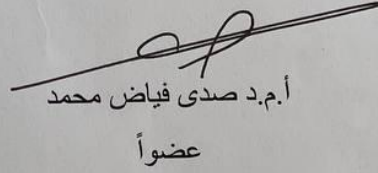 أ.م.د صدى فياض محمد
عضواً